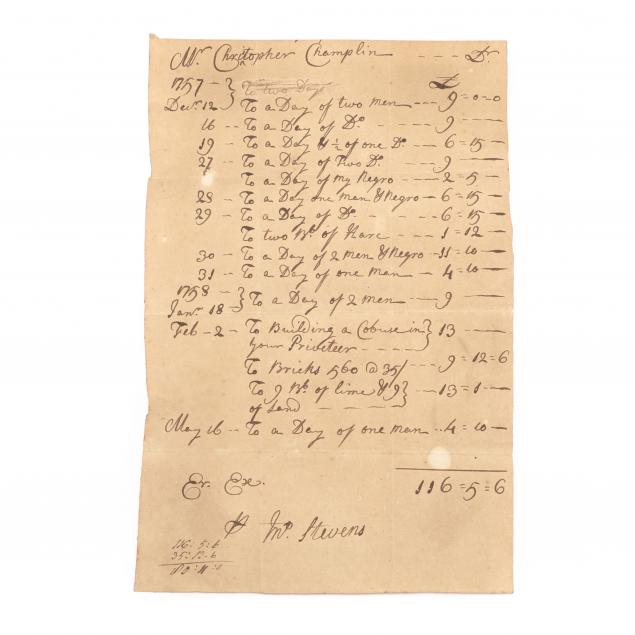 Mr. Christopher Champlin ---- Dr
1757 - } To two Days £
Decr. 12 } To a Day of two men --- 9 = 0 = 0
16 -- To a Day of Do --- 9 ---
19 - To a Day & ½ of one Do - 6 = 15 -
27 - To a Day of Two Do. --- 9 ---
To a Day of my Negro --- 2 = 5 -
28 - To a Day one man & Negro - 6 = 15 -
29 - To a Day of Do. --- 6 = 15 -
To two Bs. of Hare --- 1 = 12 -
30 - To a Day of 2 men & Negro - 11 = 10 -
31 - To a Day of one man - 4 = 10 -
1758 - }
Janr. 18 - } To a Day of 2 men --- 9 ---
Feb - 2 - To Building a Cobuse in } 13 ---
your Priveteer ---- }
To Bricks 560 @ 35/ --- 9 = 12 = 6
To 9 Bs. of lime & 9 } --- 13 = 1 -
of Sand ---- }
May 16 - To a Day of one man -- 4 = 10 -
Er. Ex. 116 = 5 = 6
Jno. Stevens
116 - 5 - 6
35 - 13 - 6